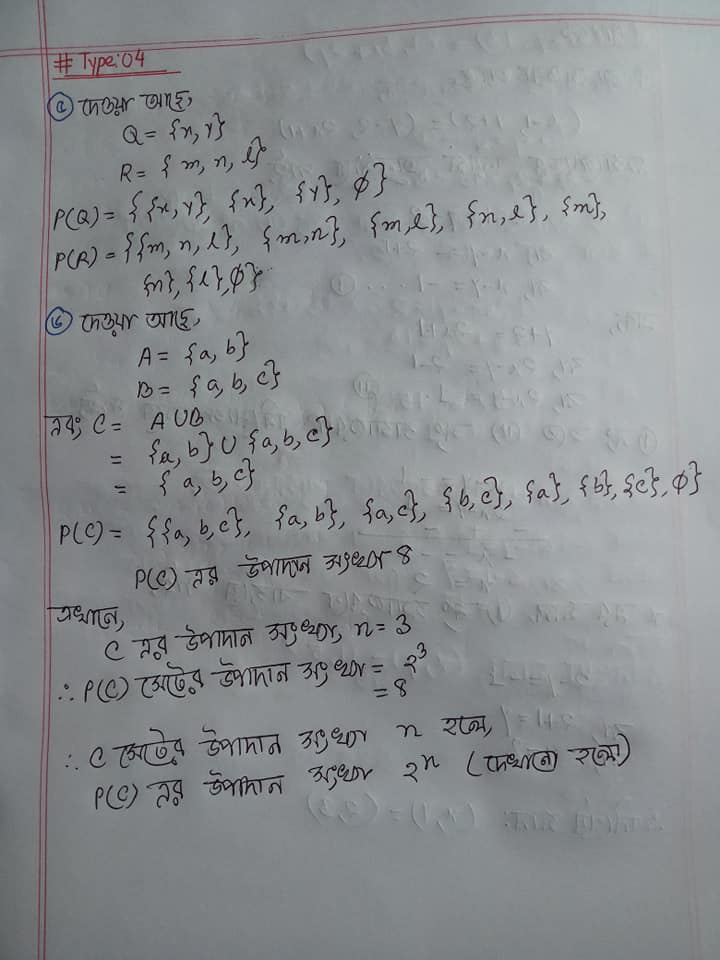 # Type: 04
৫ দেওয়া আছে,
Q = {x, y}
R = { m, n, l}
P(Q) = { {x, y}, {x}, {y}, ∅}
P(R) = {{m, n, l}, {m,n}, {m,l}, {n,l}, {m},
{n}, {l}, ∅}
৬ দেওয়া আছে,
A = {a, b}
B = {a, b, c}
এবং C = A ∪ B
= {a, b} ∪ {a, b, c}
= { a, b, c}
P(C) = {{a, b, c}, {a, b}, {a, c}, {b, c}, {a}, {b}, {c}, ∅}
P(C) এর উপাদান সংখ্যা 8
এখানে,
C এর উপাদান সংখ্যা, n = 3
∴ P(C) সেটের উপাদান সংখ্যা = 2³
= 8
∴ C সেটের উপাদান সংখ্যা n হলে,
P(C) এর উপাদান সংখ্যা 2ⁿ (দেখানো হলো)